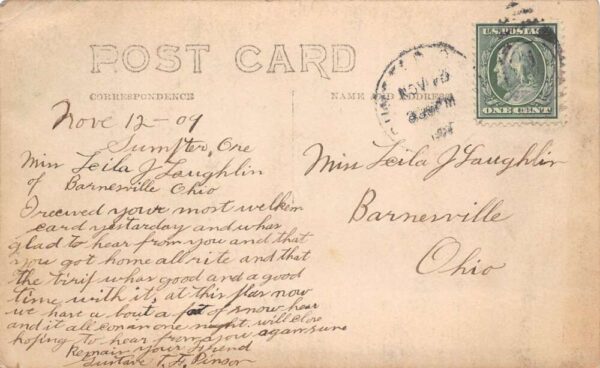 POST CARD
CORRESPONDENCE
NAME AND ADDRESS
U.S. POSTAGE
ONE CENT
NOV
Nove 12-09
Sumpter, Ore
Miss Leila J Laughlin
of Barnesville Ohio
I recived your most welkem
card yestarday and whas
glad to hear from you and that
you got home all rite and that
the whas good and a good
time with it, at this now
we have a bout a of snow hear
and it all con an one night. will close
hoping to hear from you again
Remain your friend
Gustave T. F. Pinson
Miss Leila J Laughlin
Barnesville
Ohio